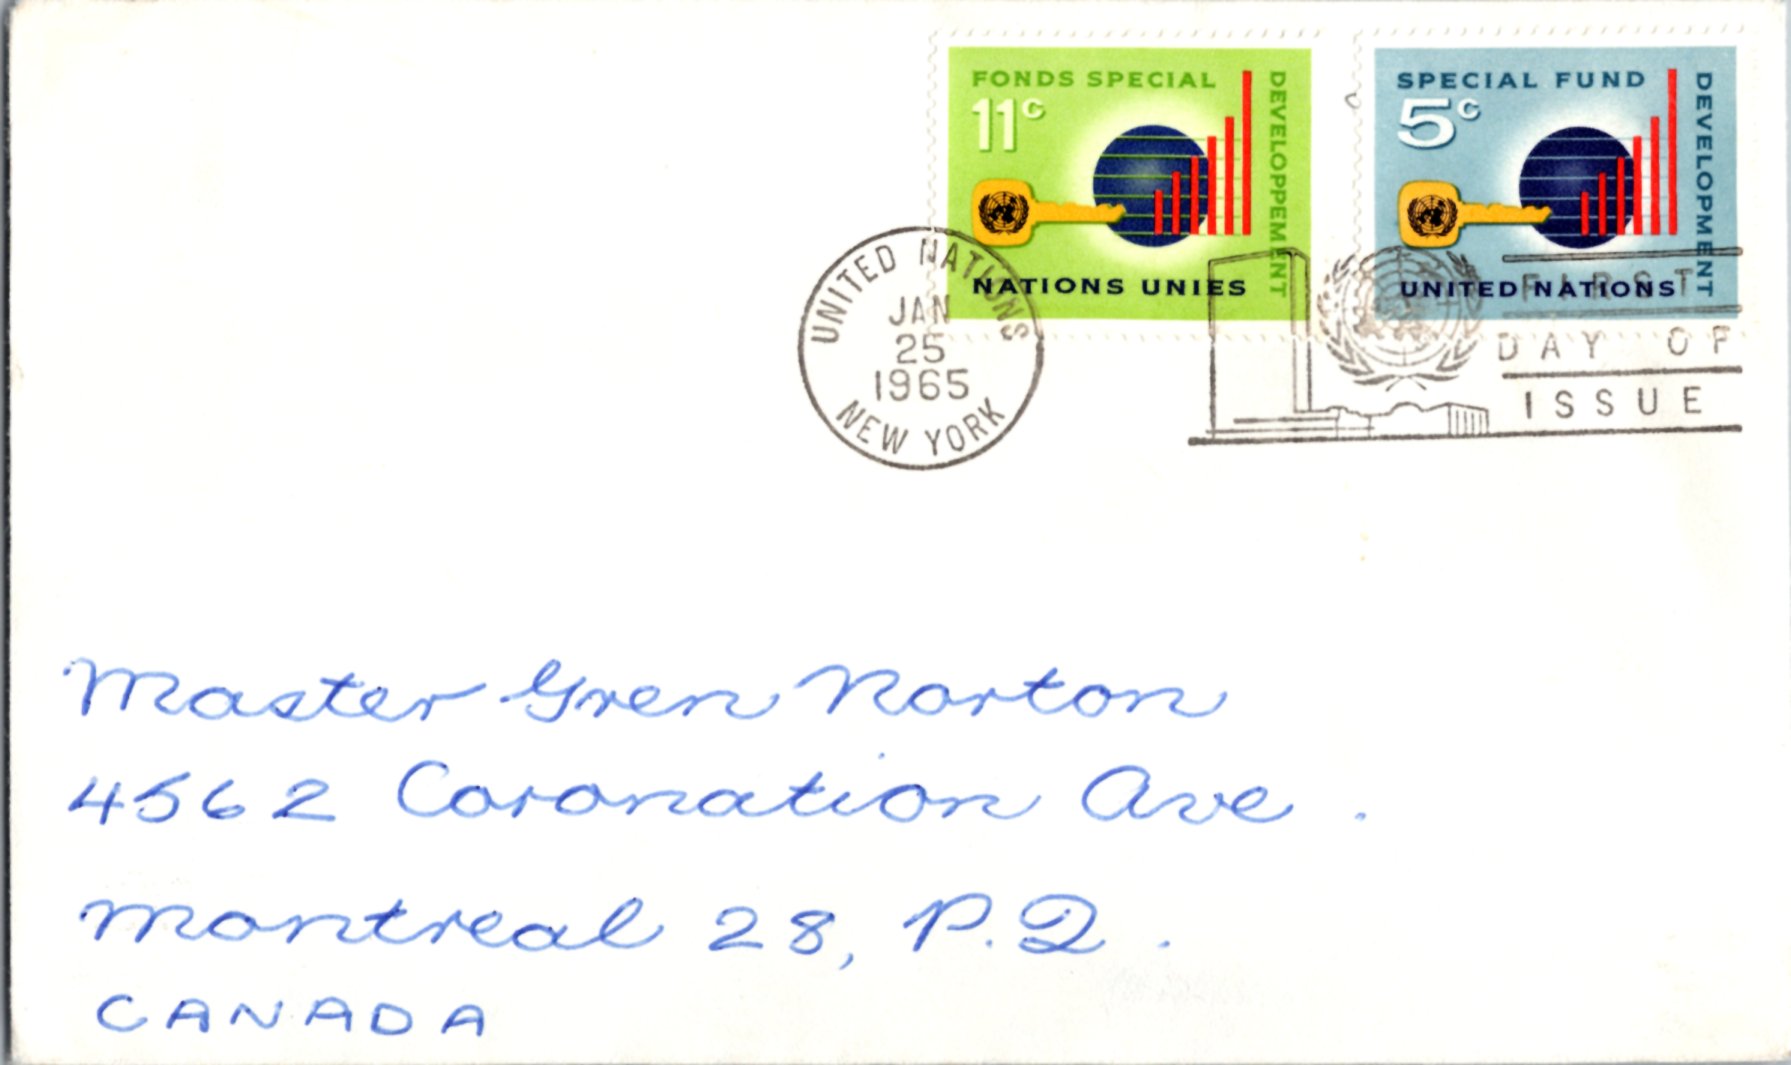 FONDS SPECIAL
11c
DEVELOPPEMENT
NATIONS UNIES
SPECIAL FUND
5c
DEVELOPMENT
UNITED NATIONS
UNITED NATIONS
JAN
25
1965
NEW YORK
FIRST
DAY OF
ISSUE
Master Gren Norton
4562 Coronation Ave.
Montreal 28, P.Q.
CANADA